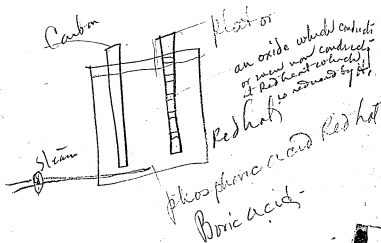 Carbon
plat or
an oxide which conducts
or even non conducts
at Red heat which
is reduced by
Red hot
Steam
phosphoric acid Red hot
Boric acid